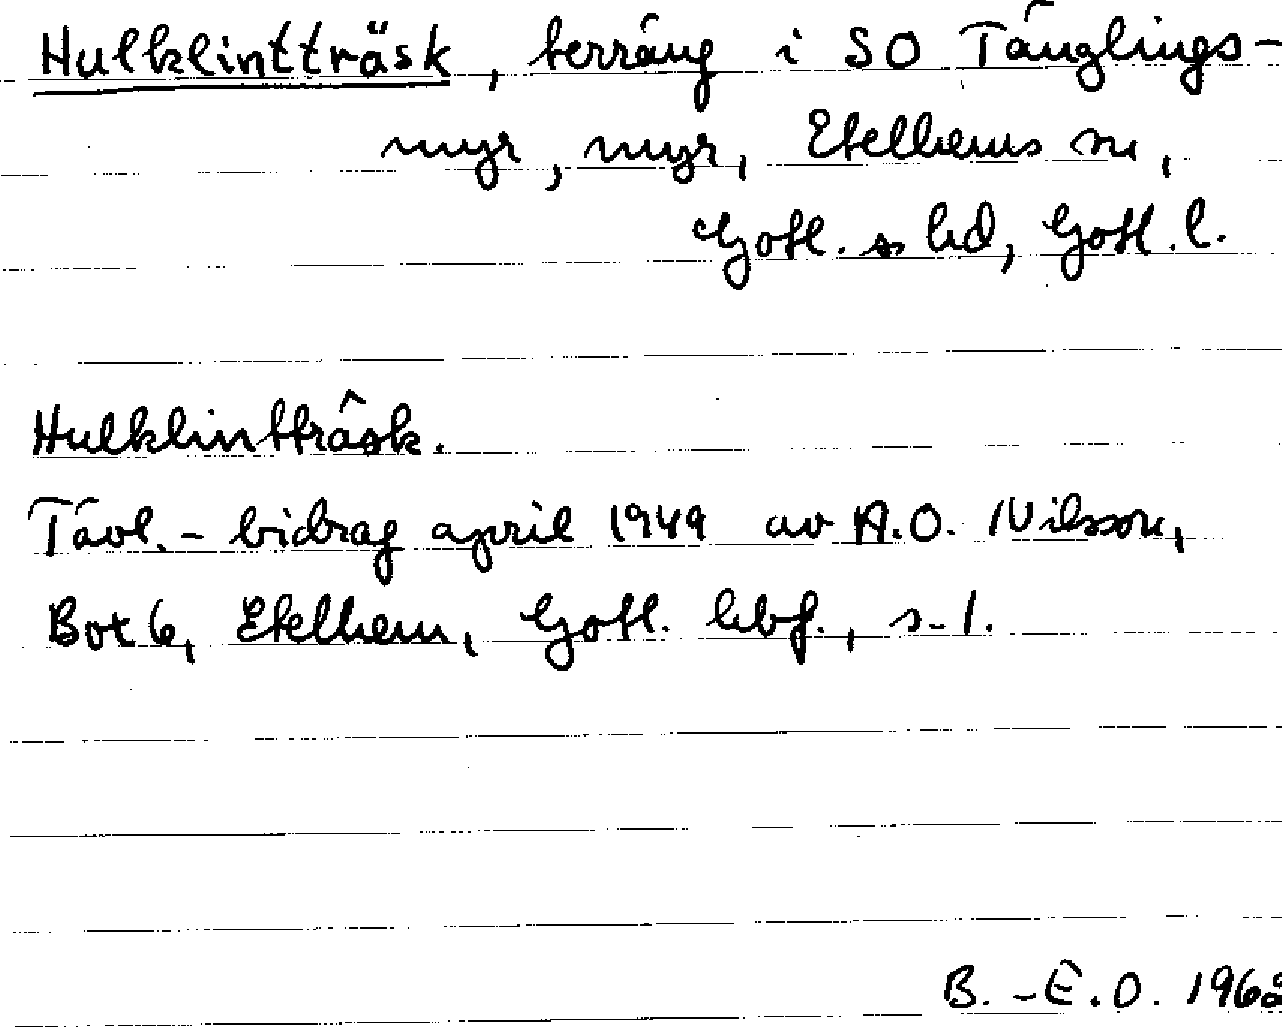 Hulklintträsk, terräng i SO Tänglings-
myr, myr, Etelhems sn,
Gotl. s hd, Gotl. l.
Hulklintträsk.
Tävl.-bidrag april 1949 av A.O. Nilsson,
Box 6, Etelhem, Gotl. hbf., s. 1.
B.-E.O. 1962